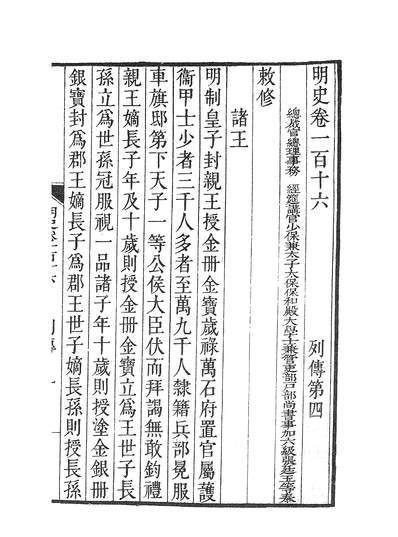 明史卷一百十六　列傳第四
總裁官總理事務　經筵講官少保兼太子太保保和殿大學士兼管吏部戶部尚書事加六級張廷玉等奉
敕修
諸王
明制皇子封親王授金册金寶歲祿萬石府置官屬護
衞甲士少者三千人多者至萬九千人隸籍兵部冕服
車旗邸第下天子一等公侯大臣伏而拜謁無敢鈞禮
親王嫡長子年及十歲則授金册金寶立爲王世子長
孫立爲世孫冠服視一品諸子年十歲則授塗金銀册
銀寶封爲郡王嫡長子爲郡王世子嫡長孫則授長孫